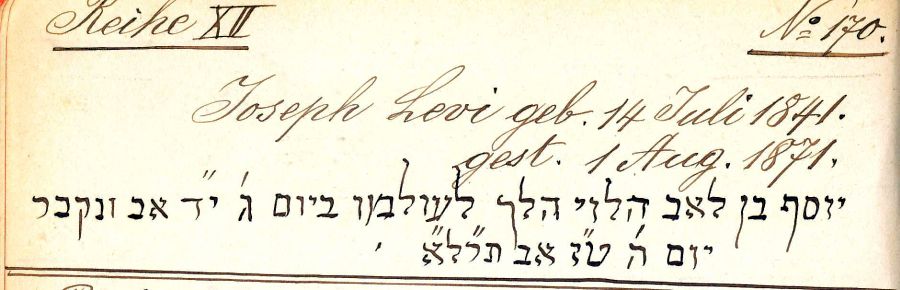 Reihe XII
No 170.
Joseph Levi geb. 14 Juli 1841.
gest. 1 Aug. 1871.
יוסף בן לאב הלוי הלך לעולמו ביום ג' י"ד אב ונקבר
יום ה' ט"ז אב תר"ל"א